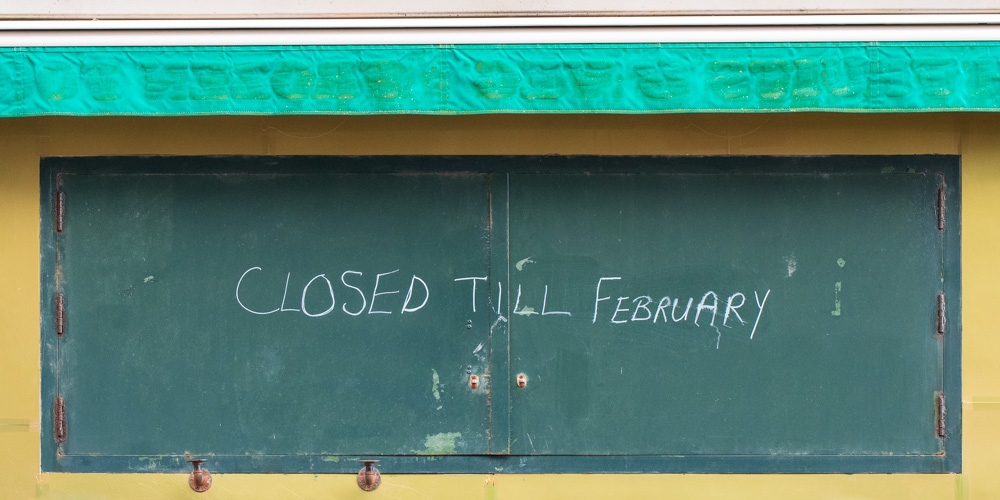 CLOSED TILL FEBRUARY